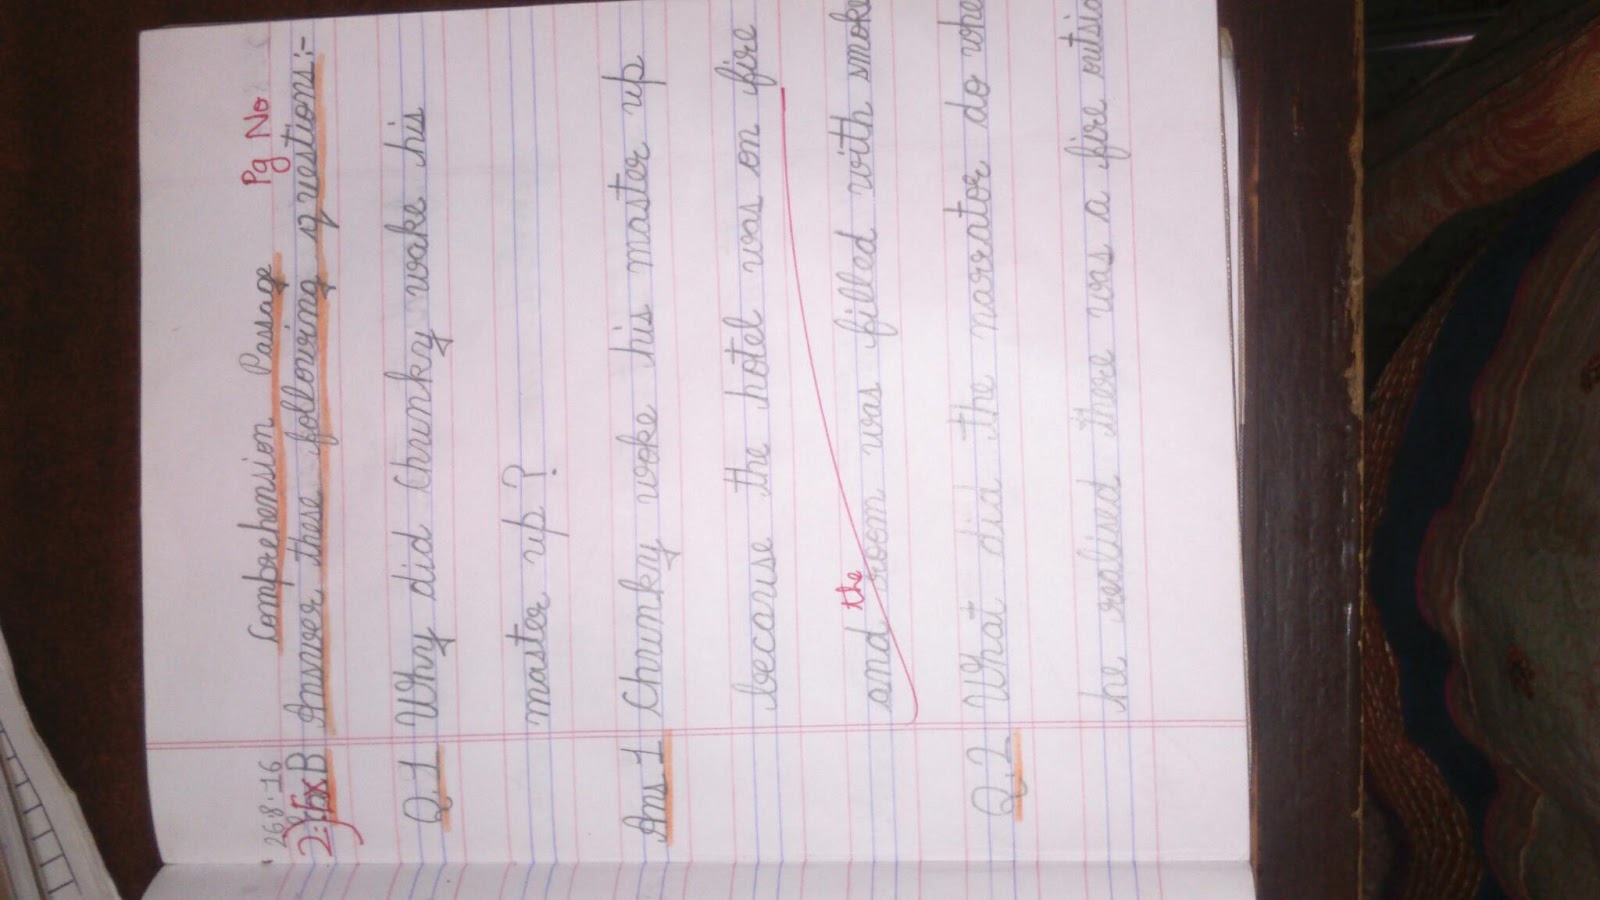 Comprehension Passage Pg No
26·8·16
2) Ex B Answer these following questions:-
Q.1 Why did Chunky wake his
master up?
Ans 1 Chunky woke his master up
because the hotel was on fire
the
and room was filled with smoke
Q.2 What did the narrator do
he realised there was a fire